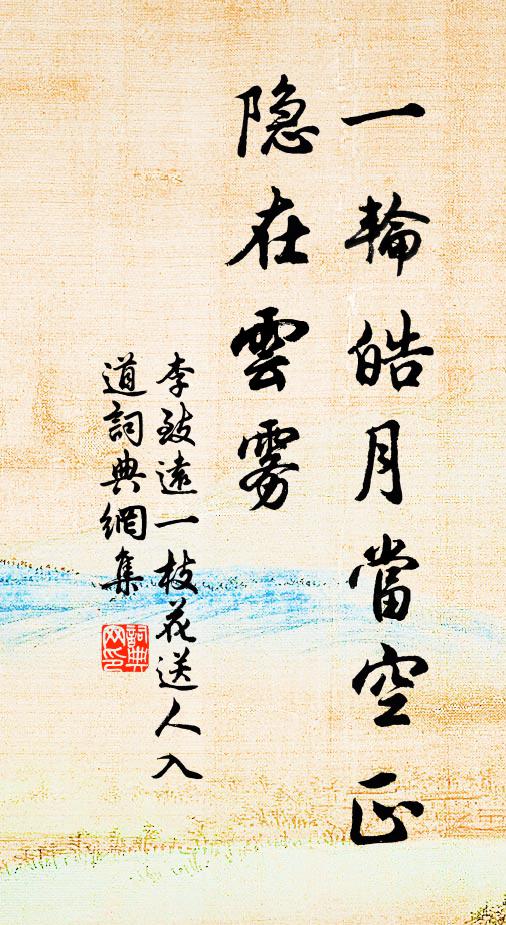 一輪皓月當空正
隐在雲雾
李致遠一枝花送人入
道詞典網集
詞典
网印